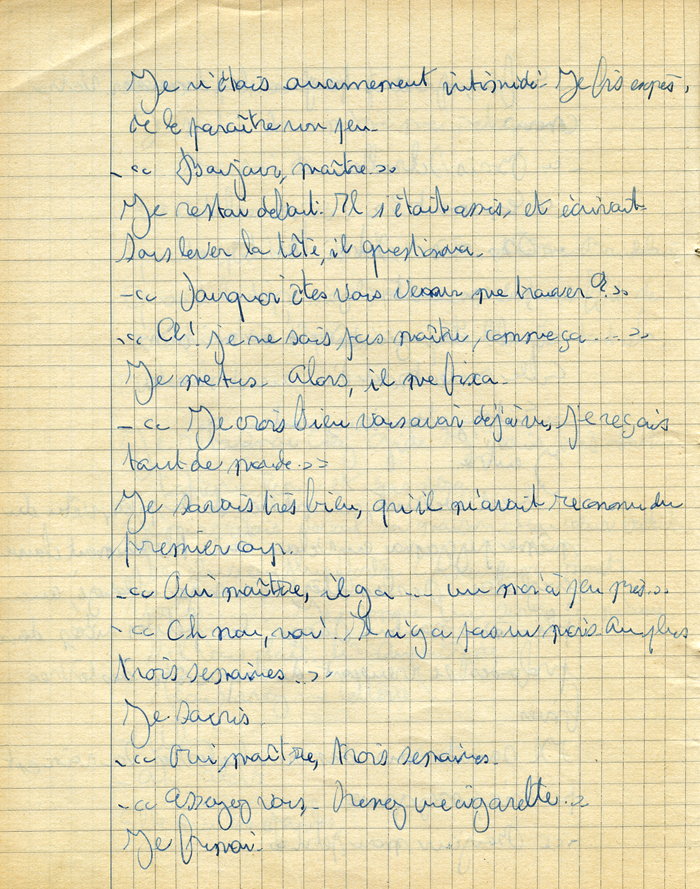 Je n'étais aucunement intimidé. Je fis exprès,
de le paraître un peu.
- << Bonjour, maître. >>
Je restai debout. Il s'était assis, et écrivait
sans lever la tête, il questionna.
- << Pourquoi êtes vous venu me trouver ? >>
- << Oh ! je ne sais pas maître, comme ça .... >>
Je me tus. Alors, il me fixa.
- << Je crois bien vous avoir déjà vu, je reçois
tant de monde. >>
Je savais très bien, qu'il m'avait reconnu du
premier coup.
- << Oui maître, il y a .... un mois à peu près. >>
- << Oh non, non ! Il n'y a pas un mois. Au plus
trois semaines. >>
Je souris.
- << Oui, maître, trois semaines.
- << Assoyez vous. Prenez une cigarette. >>
Je fumai.